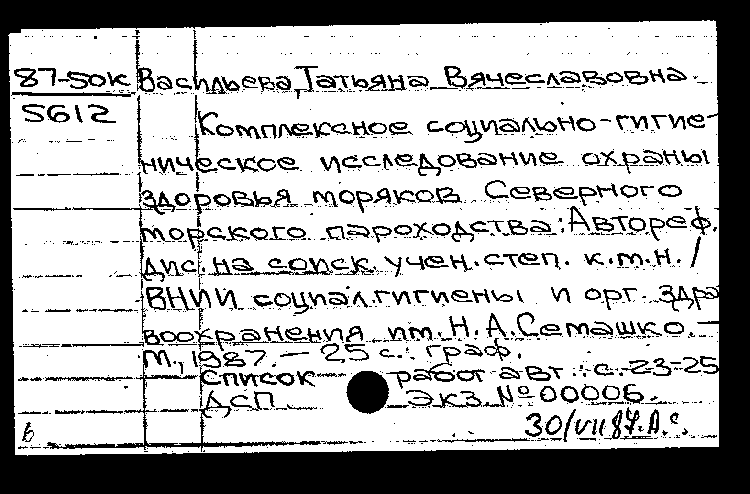 87-50к Васильева, Татьяна Вячеславовна.
5612
Комплексное социально-гигие-
ническое исследование охраны
здоровья моряков Северного
морского пароходства: Автореф.
дис. на соиск. учен. степ. к.м.н. /
ВНИИ социал. гигиены и орг. здра
воохранения им. Н.А.Семашко. —
М., 1987. — 25 с.: граф.
Список работ авт.: с. 23-25
ДСП. Экз. № 00006.
в 30/VII 87. А.С.